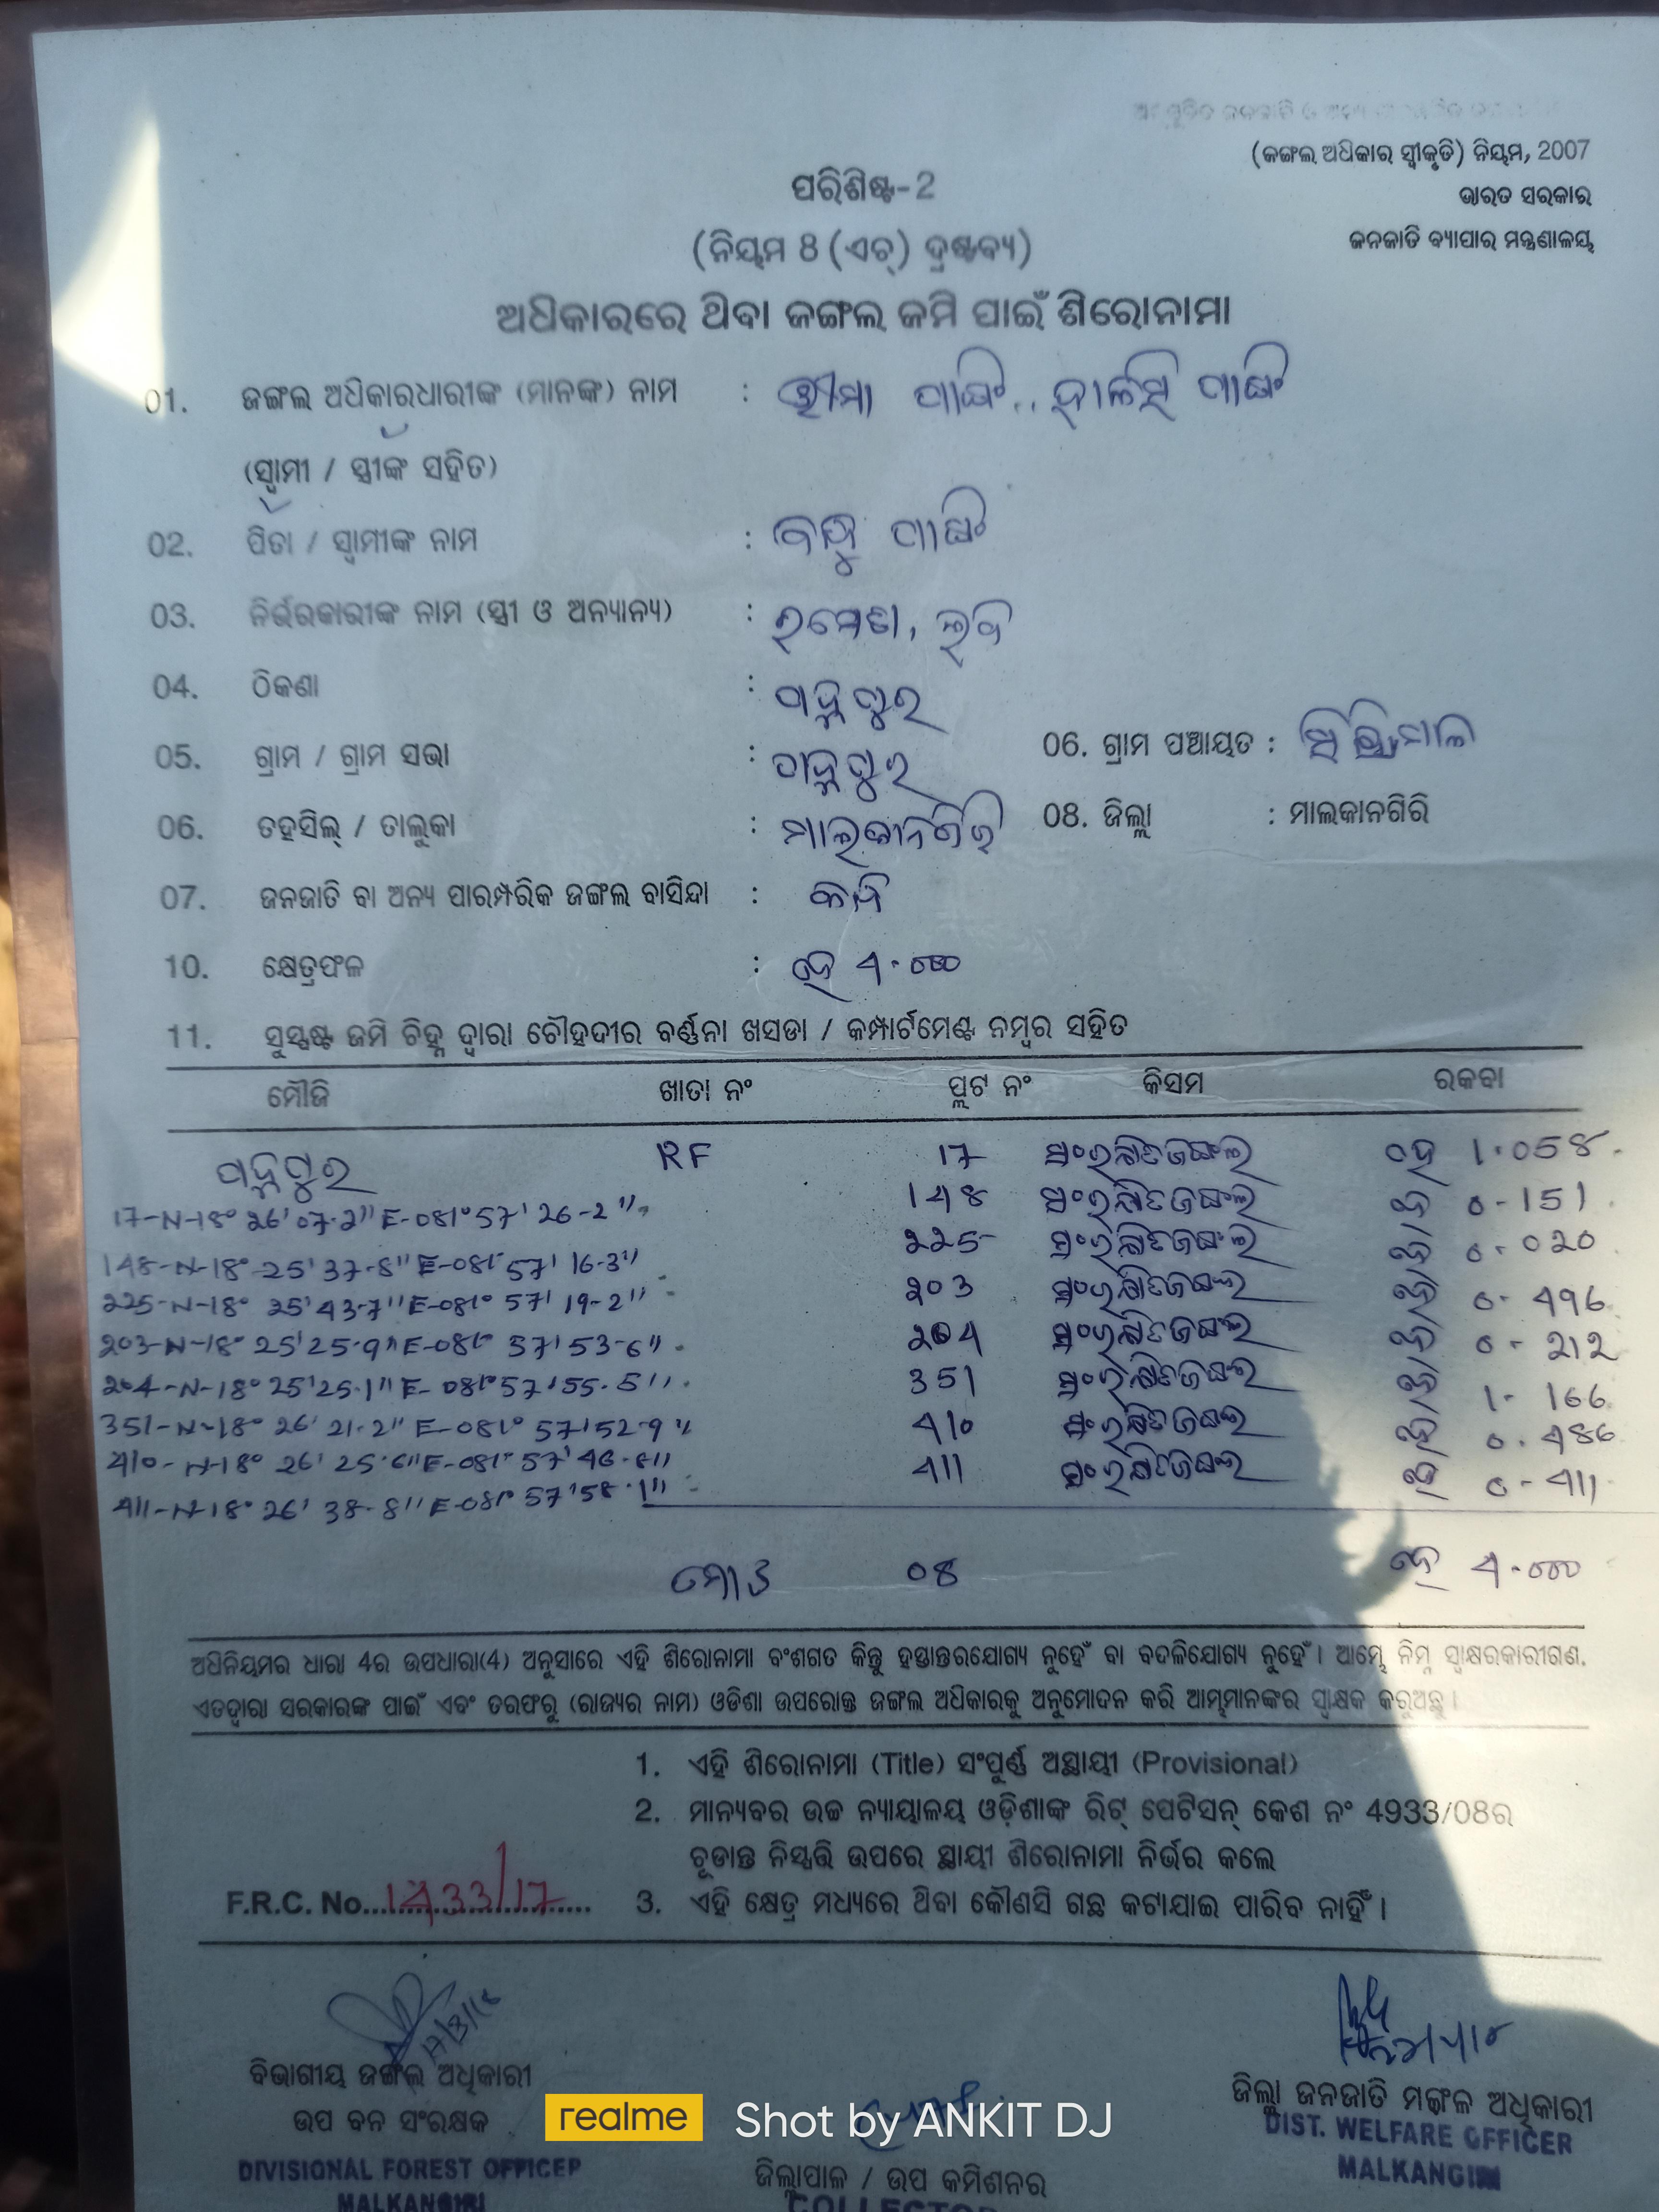 (ଜଙ୍ଗଲ ଅଧିକାର ସ୍ୱୀକୃତି) ନିୟମ, 2007
ଭାରତ ସରକାର
ଜନଜାତି ବ୍ୟାପାର ମନ୍ତ୍ରଣାଳୟ
ପରିଶିଷ୍ଟ-2
(ନିୟମ 8 (ଏଚ୍) ଦ୍ରଷ୍ଟବ୍ୟ)
ଅଧିକାରରେ ଥିବା ଜଙ୍ଗଲ ଜମି ପାଇଁ ଶିରୋନାମା
01. ଜଙ୍ଗଲ ଅଧିକାରଧାରୀଙ୍କ (ମାନଙ୍କ) ନାମ :
(ସ୍ୱାମୀ / ସ୍ତ୍ରୀଙ୍କ ସହିତ)
02. ପିତା / ସ୍ୱାମୀଙ୍କ ନାମ :
03. ନିର୍ଭରକାରୀଙ୍କ ନାମ (ସ୍ତ୍ରୀ ଓ ଅନ୍ୟାନ୍ୟ) : ରମେଶ,
04. ଠିକଣା :
05. ଗ୍ରାମ / ଗ୍ରାମ ସଭା : 06. ଗ୍ରାମ ପଞ୍ଚାୟତ :
06. ତହସିଲ୍ / ତାଲୁକା : ମାଲକାନଗିରି 08. ଜିଲ୍ଲା : ମାଲକାନଗିରି
07. ଜନଜାତି ବା ଅନ୍ୟ ପାରମ୍ପରିକ ଜଙ୍ଗଲ ବାସିନ୍ଦା :
10. କ୍ଷେତ୍ରଫଳ : ହେ ୪.୦୦୦
11. ସୁସ୍ପଷ୍ଟ ଜମି ଚିହ୍ନ ଦ୍ୱାରା ଚୌହଦୀର ବର୍ଣ୍ଣନା ଖସଡା / କମ୍ପାର୍ଟମେଣ୍ଟ ନମ୍ବର ସହିତ
ମୌଜି ଖାତା ନଂ ପ୍ଲଟ ନଂ କିସମ ରକବା
RF 17 ସଂରକ୍ଷିତ ଜଙ୍ଗଲ ହେ
17-N-18° 26' 07.2" E-081° 57' 26-2"
148 ସଂରକ୍ଷିତ ଜଙ୍ଗଲ 0-151
148-N-18° 25' 37-8" E-081° 57' 16-3"
225 ସଂରକ୍ଷିତ ଜଙ୍ଗଲ 0.020
225-N-18° 25' 43-7" E-081° 57' 19-2"
203 ସଂରକ୍ଷିତ ଜଙ୍ଗଲ 0-496
203-N-18° 25' 25.9" E-081° 57' 53-6"
204 ସଂରକ୍ଷିତ ଜଙ୍ଗଲ 0-212
204-N-18° 25' 25.1" E-081° 57' 55.5"
351 ସଂରକ୍ଷିତ ଜଙ୍ଗଲ 1-166
351-N-18° 26' 21-2" E-081° 57' 52-9"
410 ସଂରକ୍ଷିତ ଜଙ୍ଗଲ 0.486
410-N-18° 26' 25.6" E-081° 57'
411 ସଂରକ୍ଷିତ ଜଙ୍ଗଲ 0-411
411-N-18° 26' 38-8" E-081° 57' 58.1"
ମୋଟ 08 ହେ ୪.୦୦୦
ଅଧିନିୟମର ଧାରା 4ର ଉପଧାରା(4) ଅନୁସାରେ ଏହି ଶିରୋନାମା ବଂଶଗତ କିନ୍ତୁ ହସ୍ତାନ୍ତରଯୋଗ୍ୟ ନୁହେଁ ବା ବଦଳିଯୋଗ୍ୟ ନୁହେଁ । ଆମ୍ଭେ ନିମ୍ନ ସ୍ୱାକ୍ଷରକାରୀଗଣ.
ଏତଦ୍ୱାରା ସରକାରଙ୍କ ପାଇଁ ଏବଂ ତରଫରୁ (ରାଜ୍ୟର ନାମ) ଓଡିଶା ଉପରୋକ୍ତ ଜଙ୍ଗଲ ଅଧିକାରକୁ ଅନୁମୋଦନ କରି ଆମ୍ଭମାନଙ୍କର ସ୍ୱାକ୍ଷକ କରୁଅଛୁ ।
1. ଏହି ଶିରୋନାମା (Title) ସଂପୂର୍ଣ୍ଣ ଅସ୍ଥାୟୀ (Provisional)
2. ମାନ୍ୟବର ଉଚ୍ଚ ନ୍ୟାୟାଳୟ ଓଡ଼ିଶାଙ୍କ ରିଟ୍ ପେଟିସନ୍ କେଶ ନଂ 4933/08ର
ଚୂଡାନ୍ତ ନିସ୍ପତ୍ତି ଉପରେ ସ୍ଥାୟୀ ଶିରୋନାମା ନିର୍ଭର କଲେ
F.R.C. No...1433/17... 3. ଏହି କ୍ଷେତ୍ର ମଧ୍ୟରେ ଥିବା କୌଣସି ଗଛ କଟାଯାଇ ପାରିବ ନାହିଁ ।
ବିଭାଗୀୟ ଜଙ୍ଗଲ ଅଧିକାରୀ
ଉପ ବନ ସଂରକ୍ଷକ
DIVISIONAL FOREST OFFICER
MALKANGIRI
ଜିଲ୍ଲାପାଳ / ଉପ କମିଶନର
COLLECTOR
ଜିଲ୍ଲା ଜନଜାତି ମଙ୍ଗଳ ଅଧିକାରୀ
DIST. WELFARE OFFICER
MALKANGIRI
realme Shot by ANKIT DJ